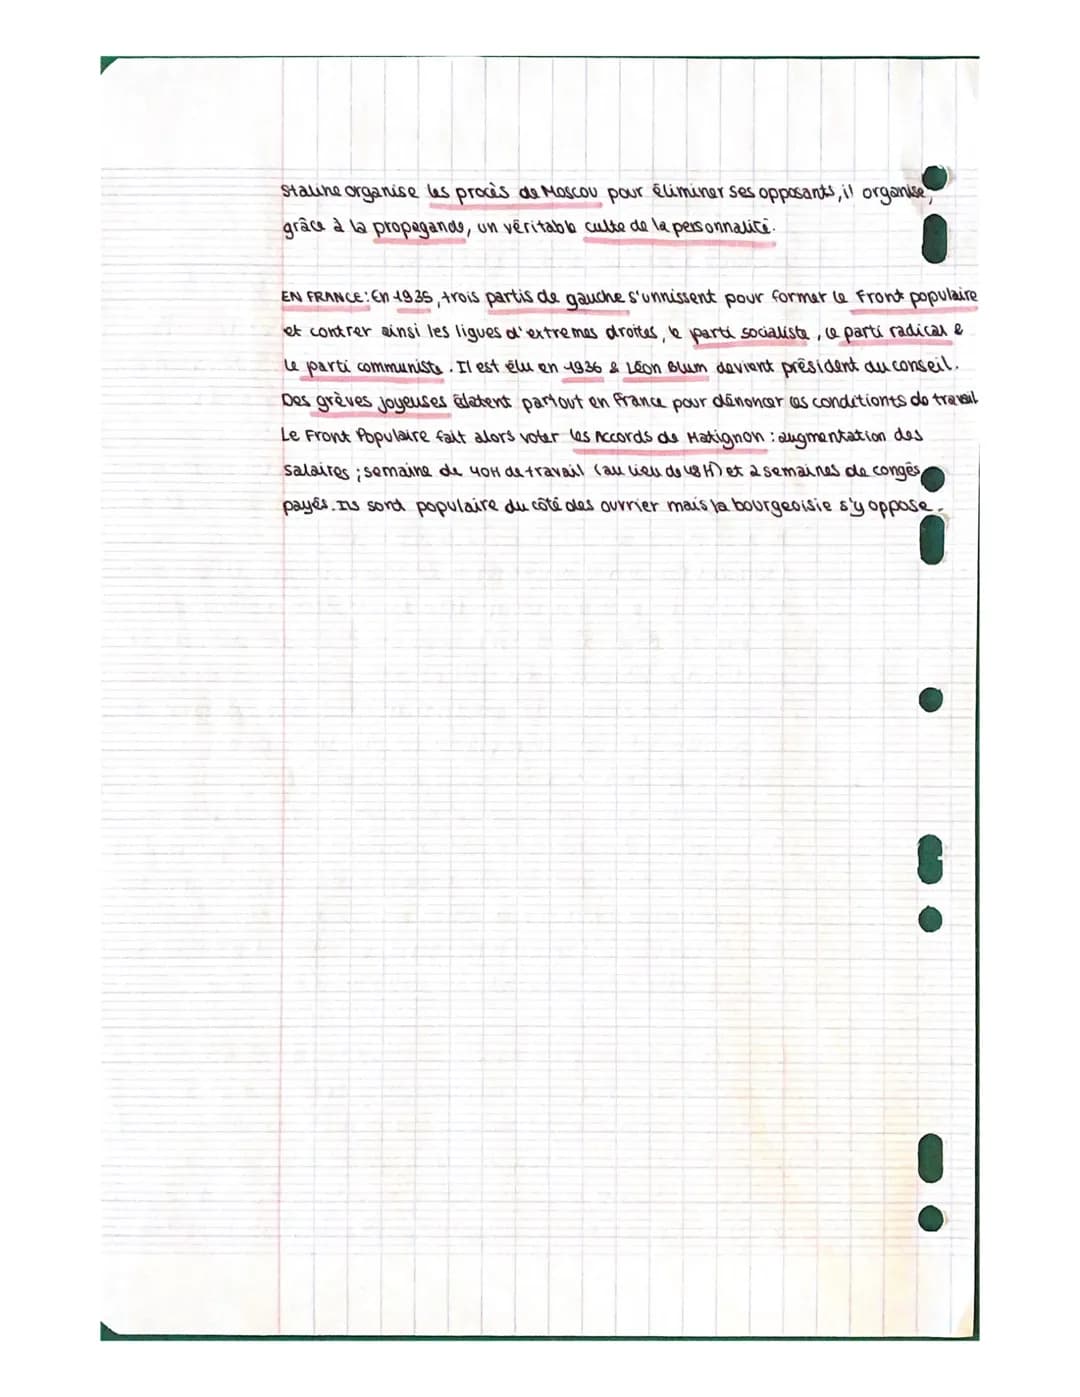 Staline organise les procès de Moscou pour éliminer ses opposants, il organise,
grâce à la propagande, un véritable culte de la personnalité.
EN FRANCE : En 1935, trois partis de gauche s'unnissent pour former le Front populaire
et contrer ainsi les ligues d'extremes droites, le parti socialiste, le parti radical &
le parti communiste. Il est élu en 1936 & Léon Blum devient président du conseil.
Des grèves joyeuses éclatent partout en France pour dénoncer les conditionts de travail
Le Front Populaire fait alors voter les Accords de Matignon : augmentation des
salaires ; semaine de 40H de travail (au lieu de 48H) et 2 semaines de congés
payés. Ils sont populaire du côté des ouvrier mais la bourgeoisie s'y oppose.